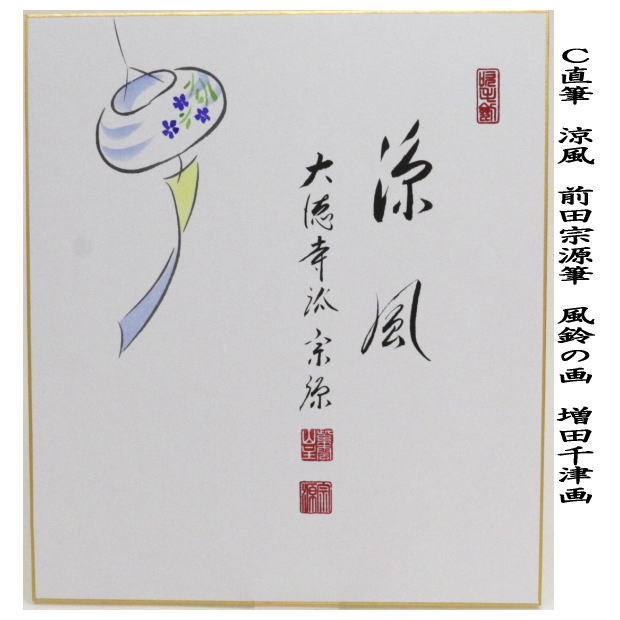 C直筆 涼風 前田宗源筆 風鈴の画 増田千津画
涼風
大徳寺派 宗源